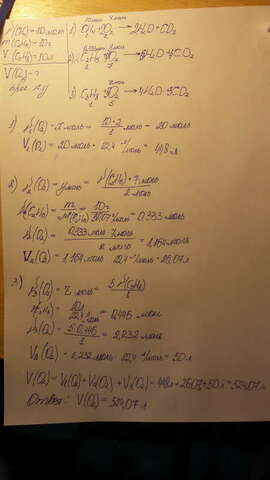 ν(CH₄)=10моль
m(C₂H₆)=10г
V(C₃H₈)=10л
V(O₂) - ?
1) CH₄+2O₂ → 2H₂O+CO₂
2) C₂H₆ 7O₂ → 6H₂O 4CO₂
3) C₃H₈ 5O₂ → 4H₂O 3CO₂
1) ν₁(O₂) = x моль = 10·2/1 моль = 20 моль
V₁(O₂) = 20 моль · 22,4 л/моль = 448 л
2) ν₂(O₂) = y моль = ν(C₂H₆)·7 моль/2 моль
ν(C₂H₆) = m/M(C₂H₆) = 10г/30,07 г/моль = 0,333 моль
ν(O₂) = 0,333 моль·7 моль/2 моль = 1,164 моль
V₂(O₂) = 1,164 моль · 22,4 л/моль = 26,07 л
3) ν₃(O₂) = z моль = 5ν(C₃H₈)/1
ν(C₃H₈) = 10л/22,4 л/моль = 0,446 моль
ν₃(O₂) = 5·0,446/1 = 2,232 моль
V₃(O₂) = 2,232 моль · 22,4 л/моль = 50 л
V(O₂) = V₁(O₂)+V₂(O₂)+V₃(O₂) = 448л+26,07+50л = 524,07л
Ответ: V(O₂) = 524,07 л